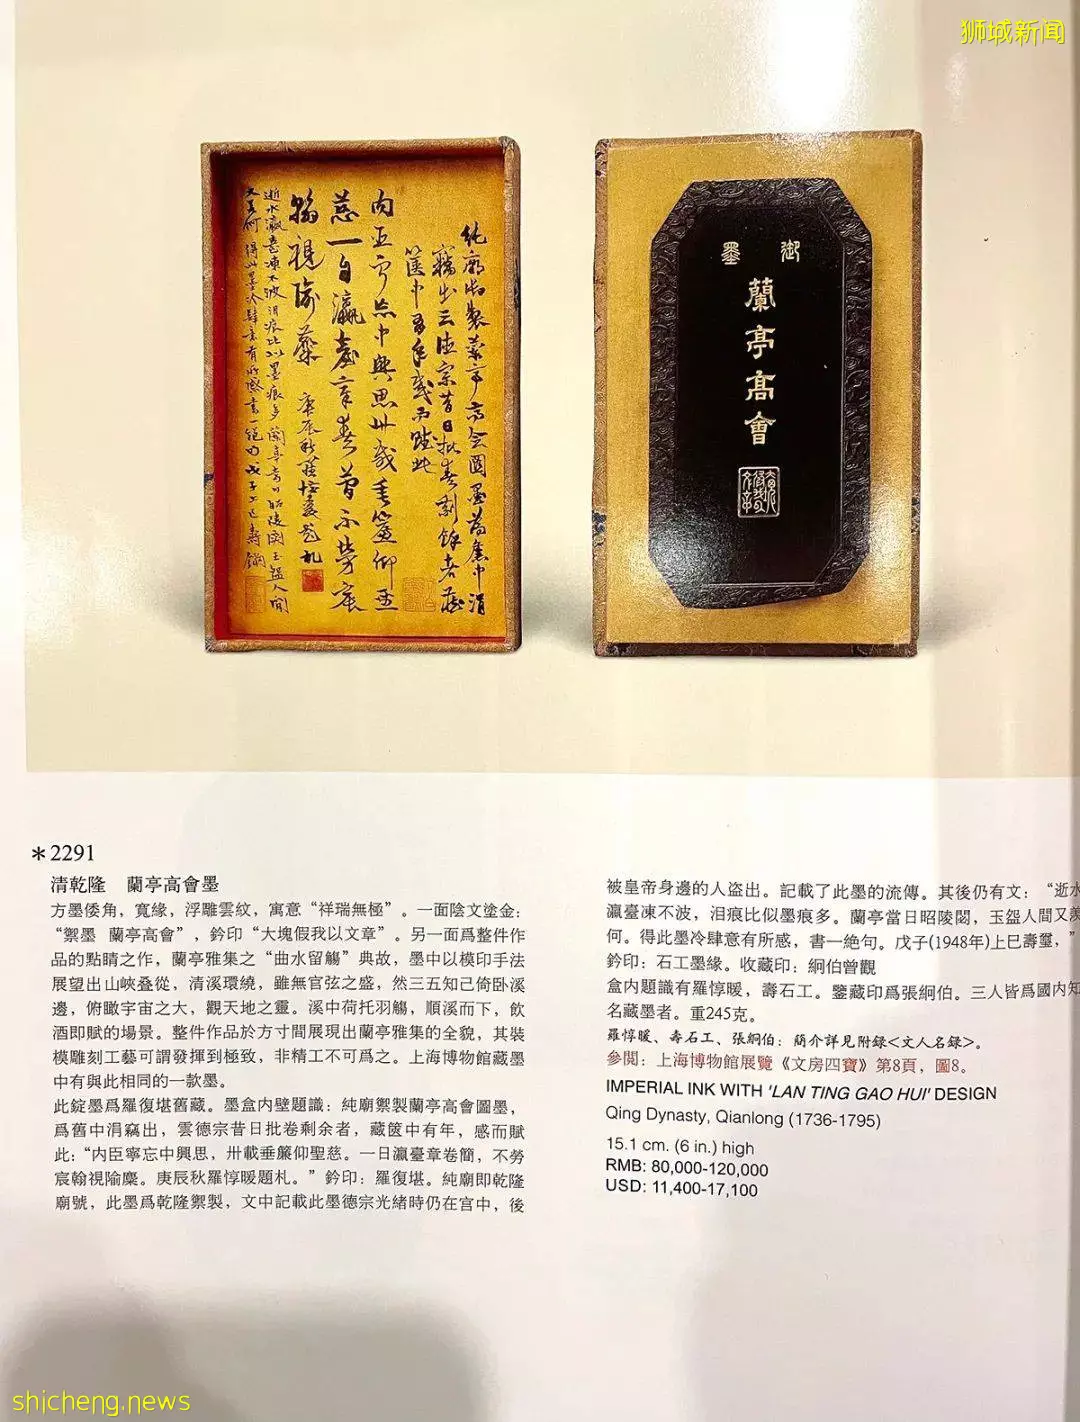 狮城新闻
純廟御製蘭亭高会圖墨為舊中涓
竊出云德宗昔日批卷剩餘者藏
篋中有年感而賦此
内臣寧忘中興思卅載垂簾仰聖
慈一日瀛臺章卷簡不勞宸
翰視隃麋 庚辰秋羅惇㬊題札
逝水瀛臺凍不波泪痕比似墨痕多蘭亭當日昭陵閟玉盌人間
又羡何 得此墨冷肆意有所感書一絕句 戊子上巳壽鉨
御墨
蘭亭高會
大塊假我以文章
＊2291
清乾隆　蘭亭高會墨
方墨倭角，寬緣，浮雕雲紋，寓意“祥瑞無極”。一面陰文塗金：
“禦墨 蘭亭高會”，鈐印“大塊假我以文章”。另一面爲整件作
品的點睛之作，蘭亭雅集之“曲水留觴”典故，墨中以模印手法
展望出山峽叠從，清溪環繞，雖無官弦之盛，然三五知己倚卧溪
邊，俯瞰宇宙之大，觀天地之靈。溪中荷托羽觴，順溪而下，飲
酒即賦的場景。整件作品於方寸間展現出蘭亭雅集的全貌，其裝
模雕刻工藝可謂發揮到極致，非精工不可爲之。上海博物館藏墨
中有與此相同的一款墨。
此錠墨爲羅復堪舊藏。墨盒内壁題識：純廟禦製蘭亭高會圖墨，
爲舊中涓竊出，雲德宗昔日批卷剩余者，藏篋中有年，感而賦
此：“内臣寧忘中興思，卅載垂簾仰聖慈。一日瀛臺章卷簡，不勞
宸翰視隃麋。庚辰秋羅惇暖題札。”鈐印：羅復堪。純廟即乾隆
廟號，此墨爲乾隆禦製，文中記載此墨德宗光緒時仍在宫中，後
被皇帝身邊的人盗出。記載了此墨的流傳。其後仍有文：“逝水
瀛臺凍不波，泪痕比似墨痕多。蘭亭當日昭陵閟，玉盌人間又羡
何。得此墨冷肆意有所感，書一絶句。戊子(1948年)上巳壽璽，”
鈐印：石工墨緣。收藏印：絅伯曾觀
盒内題識有羅惇暖，壽石工。鑒藏印爲張絅伯。三人皆爲國内知
名藏墨者。重245克。
羅惇暖、壽石工、張絅伯：簡介詳見附録<文人名録>。
參閲：上海博物館展覽《文房四寶》第8頁，圖8。
IMPERIAL INK WITH 'LAN TING GAO HUI' DESIGN
Qing Dynasty, Qianlong (1736-1795)
15.1 cm. (6 in.) high
RMB: 80,000-120,000
USD: 11,400-17,100
shicheng.news